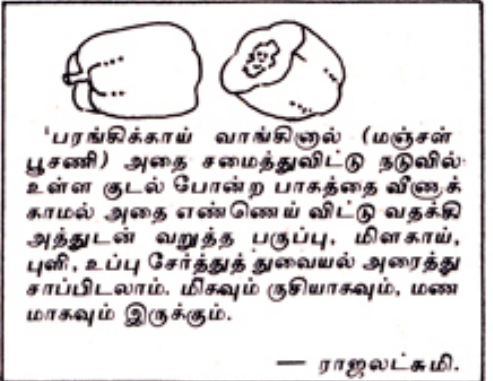 'பரங்கிக்காய் வாங்கினால் (மஞ்சள்
பூசணி) அதை சமைத்துவிட்டு நடுவில்
உள்ள குடல் போன்ற பாகத்தை வீணாக்
காமல் அதை எண்ணெய் விட்டு வதக்கி
அத்துடன் வறுத்த பருப்பு, மிளகாய்,
புளி, உப்பு சேர்த்துத் துவையல் அரைத்து
சாப்பிடலாம். மிகவும் ருசியாகவும், மண
மாகவும் இருக்கும்.
— ராஜலட்சுமி.